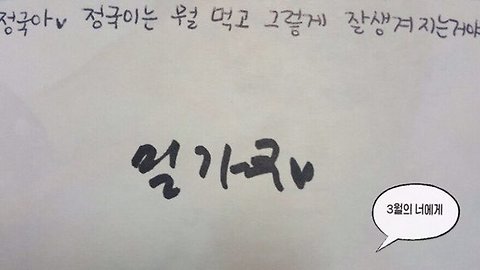 정국아♥ 정국이는 뭘 먹고 그렇게 잘생겨지는거야
밀가루♥
3월의 너에게